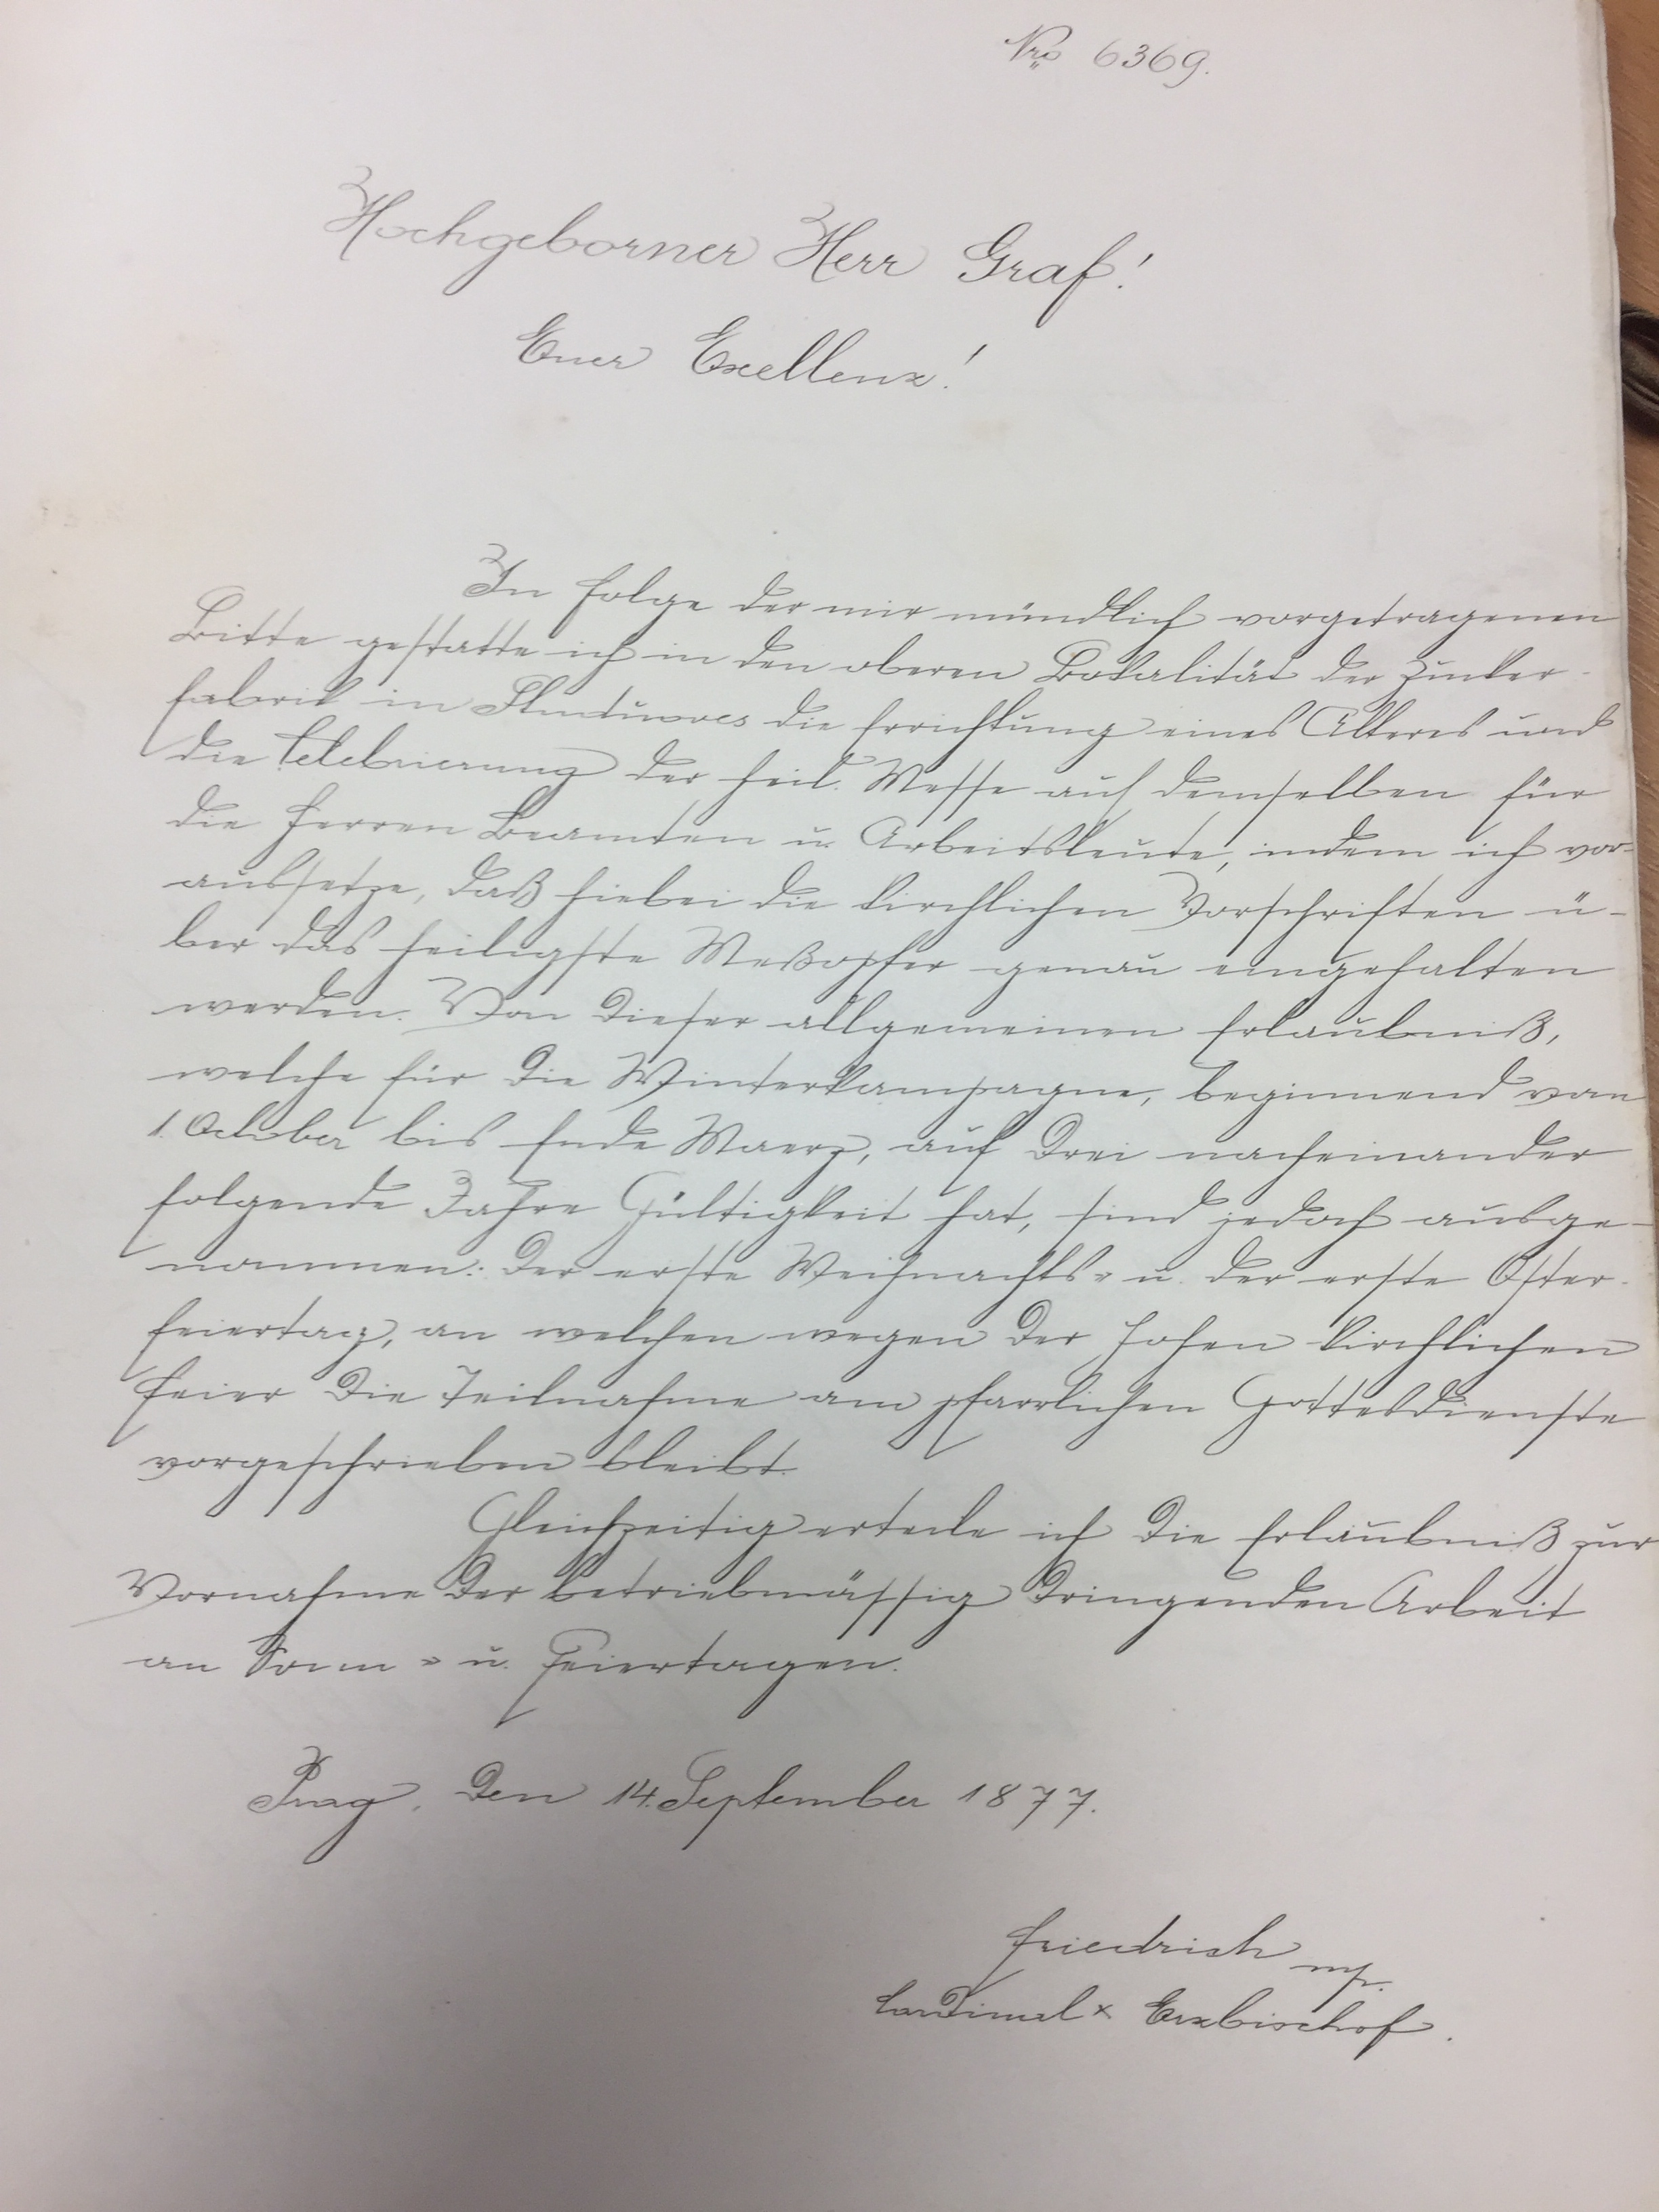 Nro 6369.
Hochgeborner Herr Graf!
Euer Exellenz!
In Folge der mir mündlich vorgetragenen
Bitte gestatte ich in den oberen Lokalität der Zucker-
fabrik in die Errichtung eines Altares und
die Celebrierung der heil. Messe auf demselben für
die Herren Beamten u. Arbeitsleute, indem ich vor-
aussetze, daß hiebei die kirchlichen Vorschriften ü-
ber das heiligste Meßopfer genau eingehalten
werden. Von dieser allgemeinen Erlaubniß,
welche für die Winterkampagne, beginnend vom
1. October bis Ende Maerz, auf drei nacheinander
folgende Jahre Gültigkeit hat, sind jedoch ausge-
nommen: der erste Weihnachts- u. der erste Oster-
feiertag, an welchen wegen der hohen kirchlichen
Feier die Teilnahme am pfarrlichen Gottesdienste
vorgeschrieben bleibt.
Gleichzeitig erteile ich die Erlaubniß zur
Vornahme der betriebmässig dringenden Arbeit
an Sonn- u. Feiertagen.
Prag, den 14. September 1877.
Friedrich mp.
Cardinal x Erzbischof.